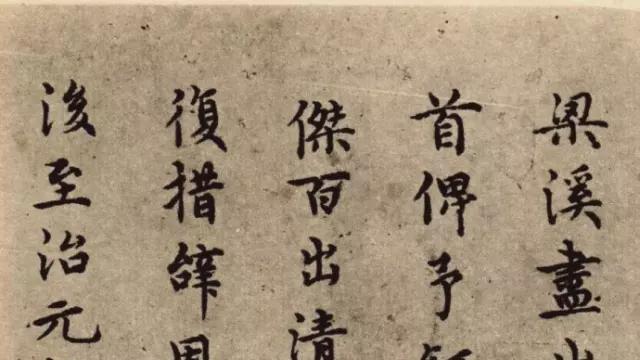 梁溪盡
首俾予
傑百出清
復措辭
後至治元